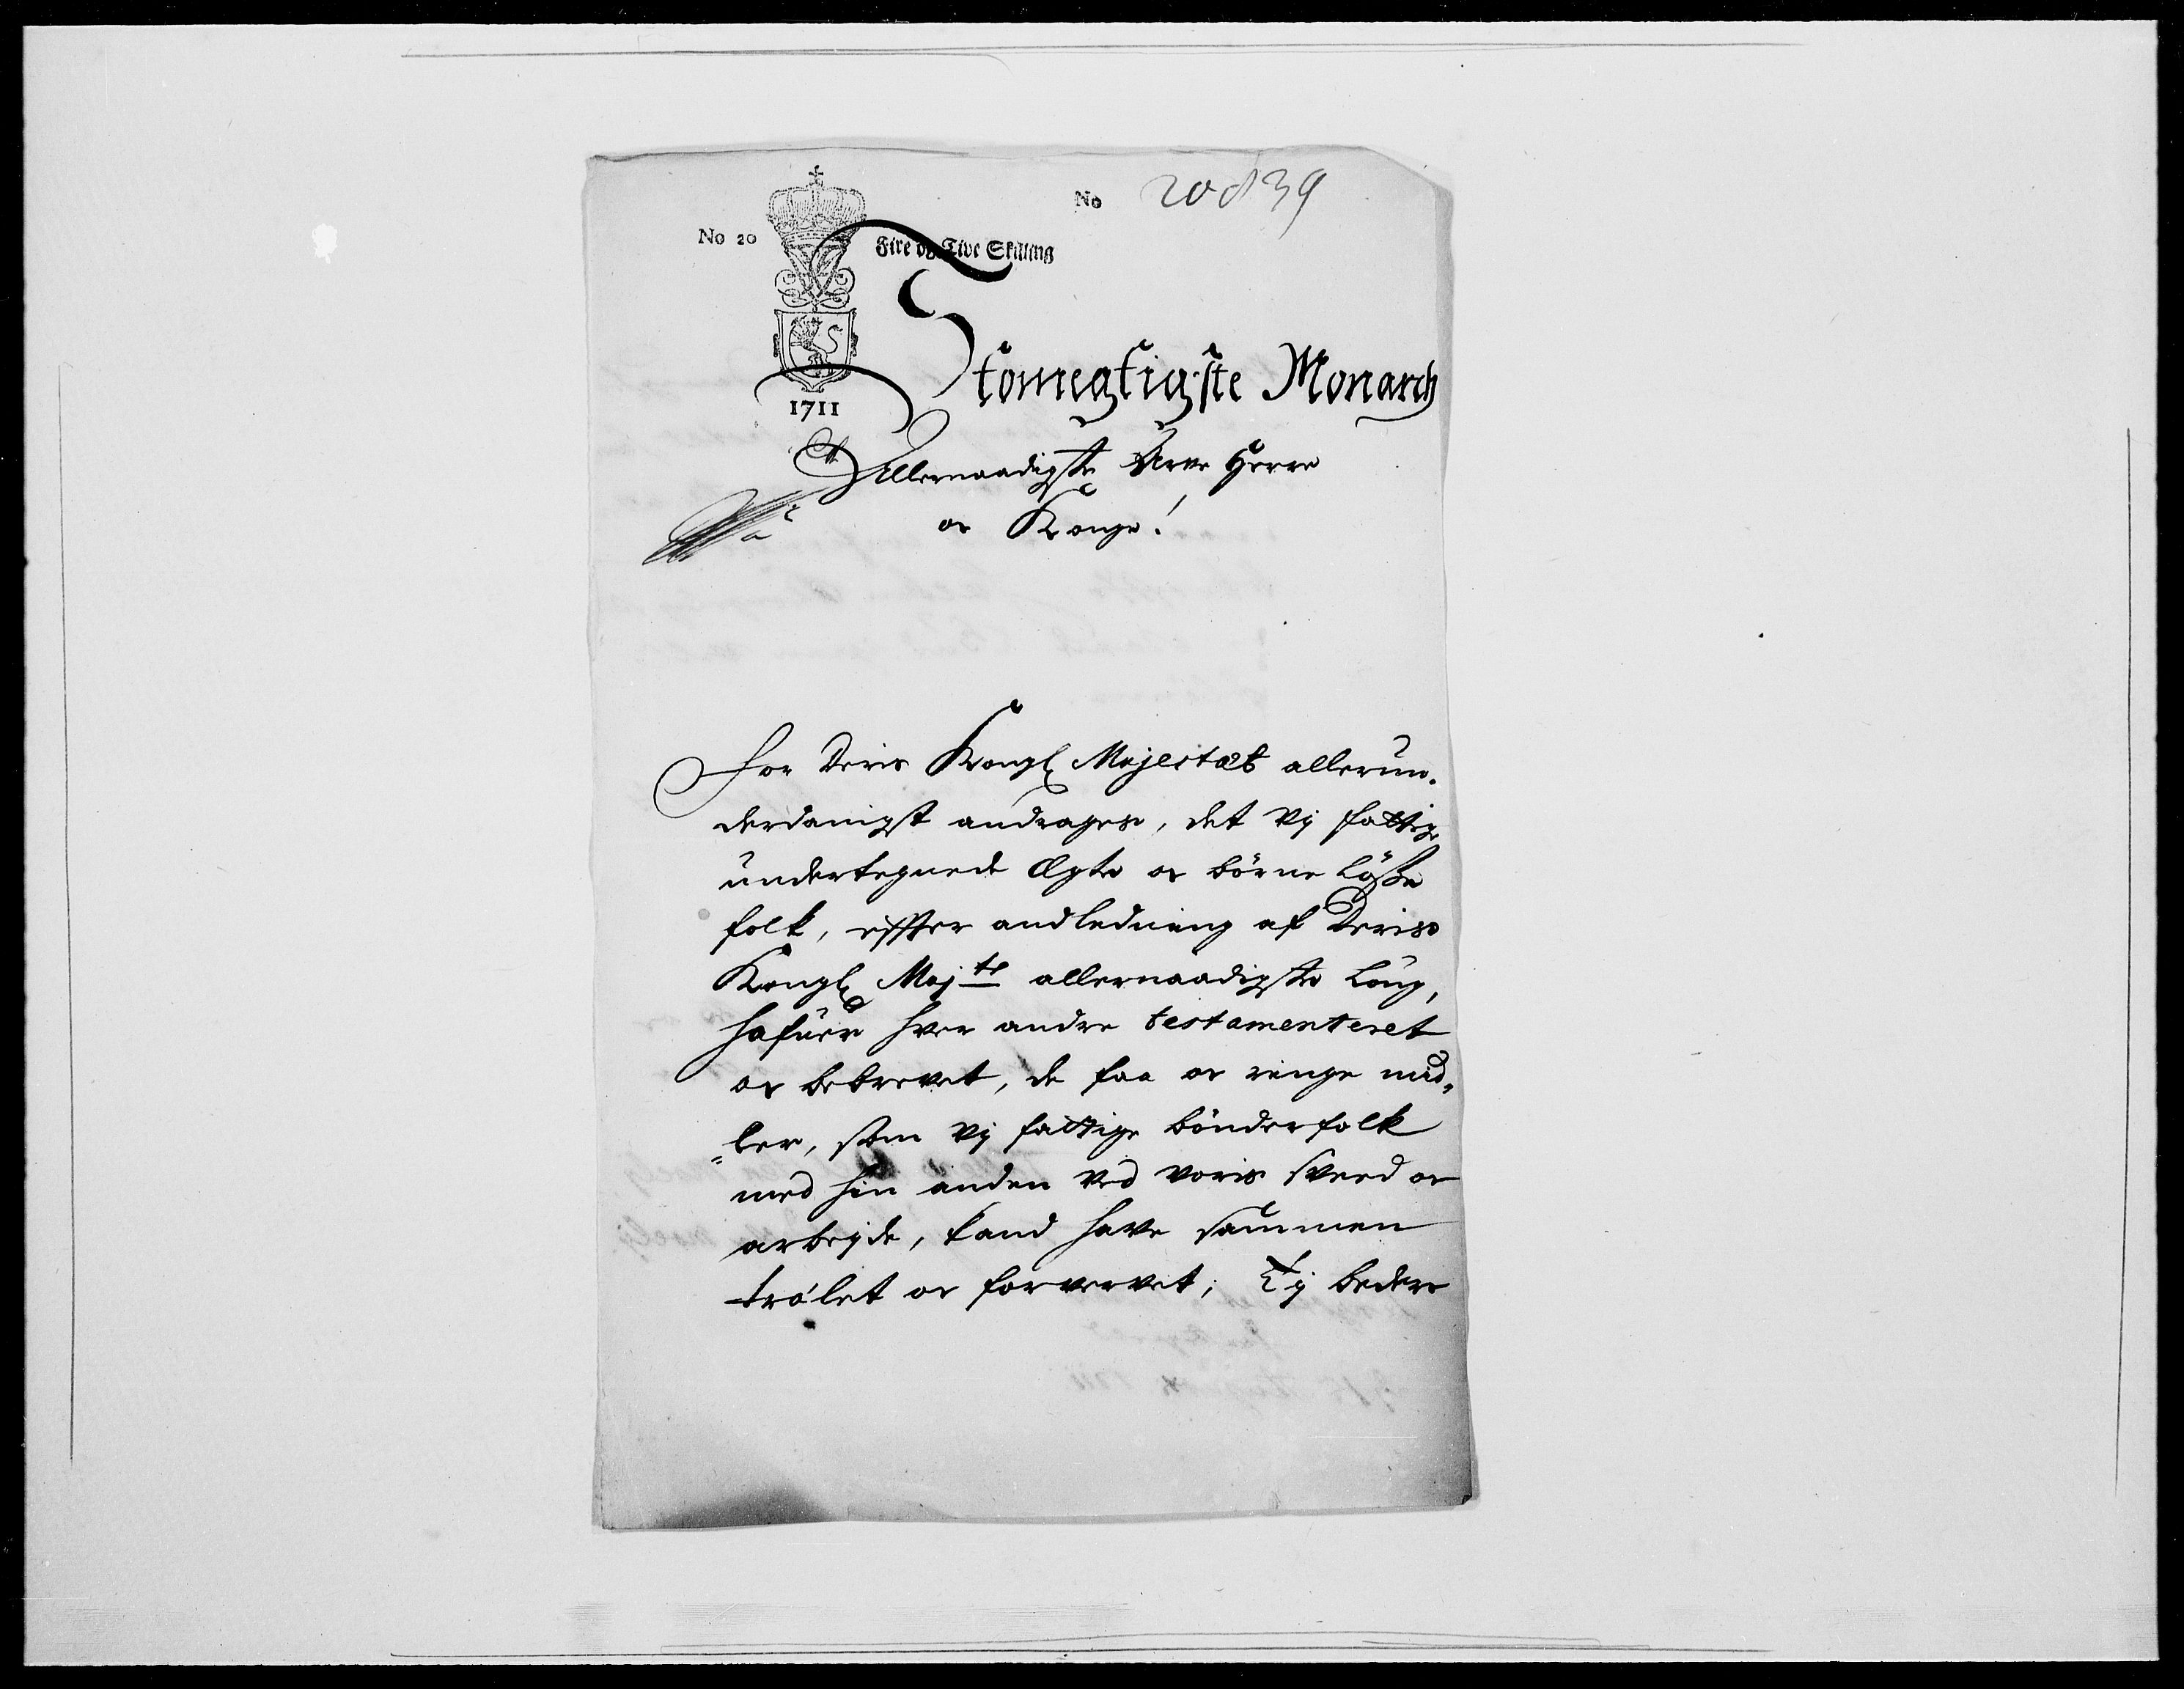 No 20839
No 20
Fire og Tive Skilling
1711
Stormegtigste Monarch
Allernaadigste Arve Herre
oc Konge!
For Deris Kongl Majestæt allerun-
derdanigst andrages, det Vj fattige
undertegnede Ægte oc börne Lösse
folk, effter andledning af Deris
Kongl Majts allernaadigste Loug,
hafuer hver andre testamenteret
oc bebrevet, de faa oc ringe mid-
=ler, som Vj fattige bönderfolk
med hin anden ved voris sveed oc
arbejde, kand have sammen
trålet oc forvervet; Tj beder